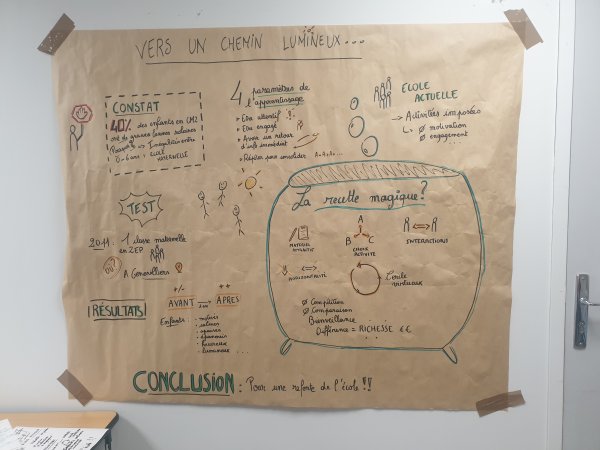 VERS UN CHEMIN LUMINEUX...
CONSTAT
40% des enfants en CM2
ont de graves lacunes scolaires
Inégalités entre
0-6 ans : ECOLE
MATERNELLE
4 paramètres de
l'apprentissage
Etre attentif
Etre engagé
Avoir un retour
d'info immédiat
Répéter pour consolider
ECOLE
ACTUELLE
→ Activités imposées
Ø motivation
Ø engagement
TEST
2011 : 1 classe maternelle
en ZEP
OU?
A Gennevilliers
RÉSULTATS
+/- ++
AVANT → APRES
Enfants :
calmes
épanouis
heureux
lumineux ...
La recette magique?
MATERIEL
A
B C
CHOIX
ACTIVITÉ
INTERACTIONS
L'école
vertueux
Ø Compétition
Ø Comparaison
Bienveillance
Différence = RICHESSE €€
CONCLUSION : Pour une refonte de l'école !!